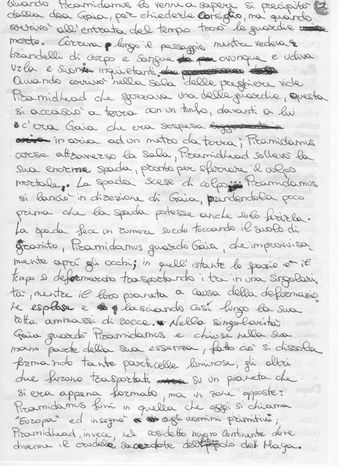 Quando Piramidamus lo venne a sapere si precipitò
dalla dea Gaia, per chiederle consiglio, ma quando
arrivò all'entrata del tempio trovò le guardie
morte. Correva lungo il passaggio mentre vedeva
brandelli di corpo e sangue ovunque e udiva
urla e suoni inquietanti,
Quando arrivò nella sala delle preghiere vide
Piramidhead che sgozzava una delle guardie, questa
si accasciò a terra con un tonfo, davanti a lui
c'era Gaia che era sospesa
in aria ad un metro da terra; Piramidamus
corse attraverso la sala, Piramidhead sollevò la
sua enorme spada, pronto per sferrare il colpo
mortale. La spada scese di colpo, Piramidamus
si lanciò in direzione di Gaia, prendendola poco
prima che la spada potesse anche solo ferirla.
La spada fece un rumore sordo toccando il suolo di
granito, Piramidamus guardò Gaia, che improvvisa-
mente aprì gli occhi; in quell'istante lo spazio e il
tempo si deformarono trasportando i tre in una singolari-
tà, mentre il loro pianeta a causa della deformazio-
ne esplose e lasciando così lungo la sua
rotta ammassi di rocce. Nella singolarità
Gaia guardò Piramidamus e chiuse nella sua
mano parte della sua essenza, fatto ciò si dissolse
formando tante particelle luminose, gli altri
due furono trasportati su un pianeta che
si era appena formato, ma in zone opposte:
Piramidamus finì in quella che oggi si chiama
"Europa" ed insegnò agli uomini primitivi,
Piramidhead, invece, nel cosidetto nuovo continente dove
divenne il crudele sacerdote dei Maya.